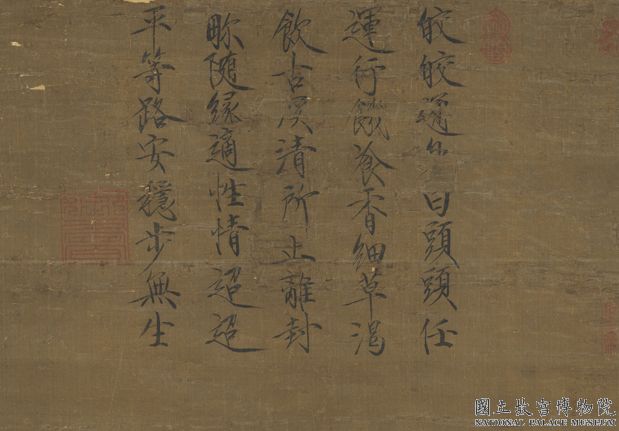 皎皎還日頭頭任
運行饑飡香細草渴
飲古溪清所止離封
畛隨緣適性情迢迢
平等路安穩步無生
國立故宮博物院
NATIONAL PALACE MUSEUM